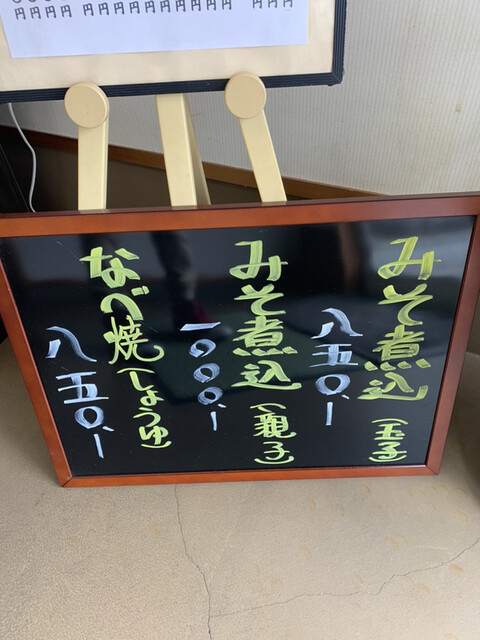 円円円円円円円円 円円円
みそ煮込(玉子)
八五〇、-
みそ煮込(親子)
一〇〇〇、-
なべ焼(しょうゆ)
八五〇、-